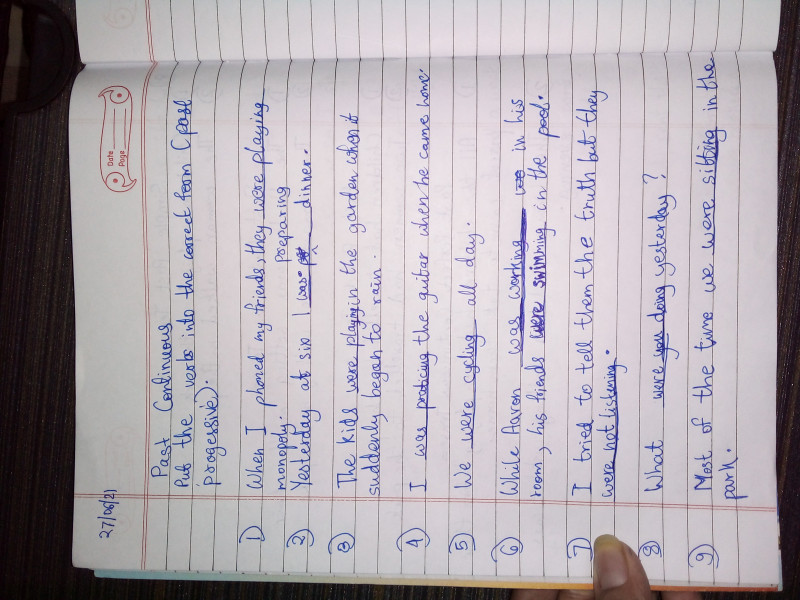 Date
Page
27/06/21
Past Continuous
Put the verbs into the correct form (past
progessive).
1) When I phoned my friends, they were playing
monopoly.
preparing
2) Yesterday at six I was dinner.
3) The kids were playing in the garden when it
suddenly began to rain.
4) I was practicing the guitar when he came home.
5) We were cycling all day.
6) While Aaron was working in his
room, his friends were swimming in the pool.
7) I tried to tell them the truth but they
were not listening.
8) What were you doing yesterday?
9) Most of the time we were sitting in the
park.